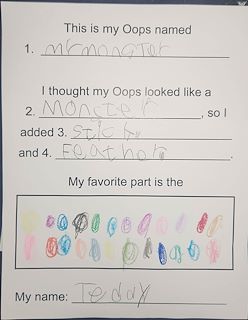 This is my Oops named
1. mrmonster
I thought my Oops looked like a
2. Monster, so I
added 3. Stick
and 4. Feather
My favorite part is the
My name: Teddy